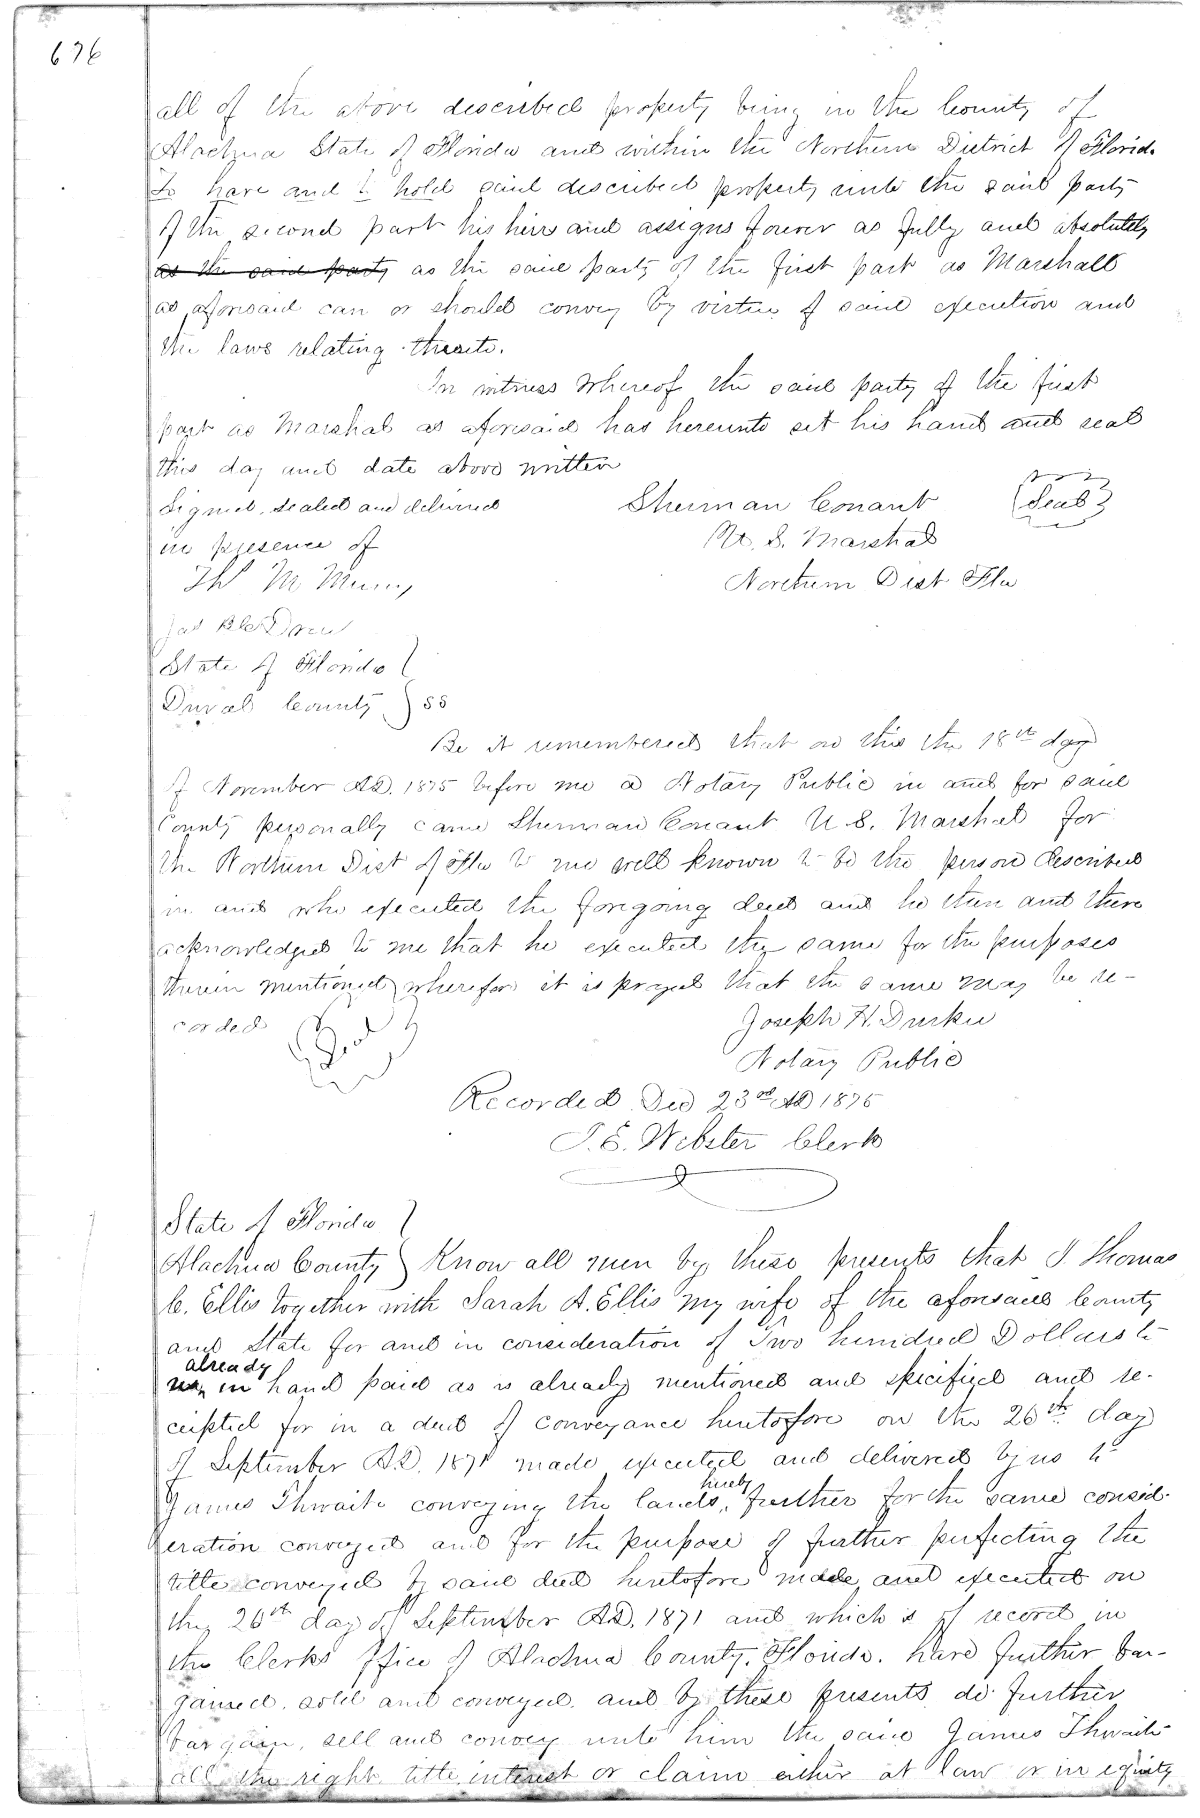 676
all of the above described property being in the County of
Alachua State of Florida and within the Northern District of Florida
To have and to hold said described property unto the said party
of the second part his heirs and assigns forever as fully and absolutely
as the said party as the said party of the first part as Marshall
as aforesaid can or should convey by virtue of said execution and
the laws relating thereto.
In witness whereof the said party of the first
part as Marshal as aforesaid has hereunto set his hand and seal
this day and date above written
Signed, sealed and delivered
in presence of
Sherman Conant {Seal}
U. S. Marshal
Northern Dist Fla
Thos M
Jas
State of Florida }
Duval County } SS
Be it remembered that on this the 18th day
of November AD. 1875 before me a Notary Public in and for said
County personally came Sherman Conant U. S. Marshal for
the Northern Dist of Fla to me well known to be the person described
in and who executed the foregoing deed and he then and there
acknowledged to me that he executed the same for the purposes
therein mentioned wherefore it is prayed that the same may be re-
corded {Seal}
Joseph H. Durkee
Notary Public
Recorded Dec 23rd AD 1875
J. E. Webster Clerk
State of Florida }
Alachua County } Know all men by these presents that I. Thomas
C. Ellis together with Sarah A. Ellis my wife of the aforesaid County
and State for and in consideration of Two hundred Dollars to
already
in hand paid as is already mentioned and specified and re-
ceipted for in a deed of conveyance heretofore on the 26th day
of September AD. 1871 made executed and delivered by us to
James Thwaite conveying the lands, hereby further for the same consid-
eration conveyed and for the purpose of further perfecting the
title conveyed by said deed heretofore made and executed on
the 26th day of September AD. 1871 and which is of record in
the Clerks office of Alachua County, Florida. have further bar-
gained, sold and conveyed and by these presents do further
bargain, sell and convey unto him the said James Thwaite
all the right, title, interest or claim either at law or in equity